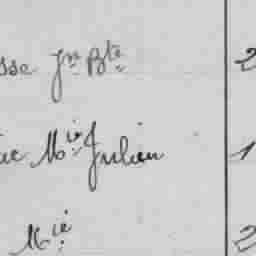 sse Jn Bte 2
ue Mie Julien 1
Mie 2